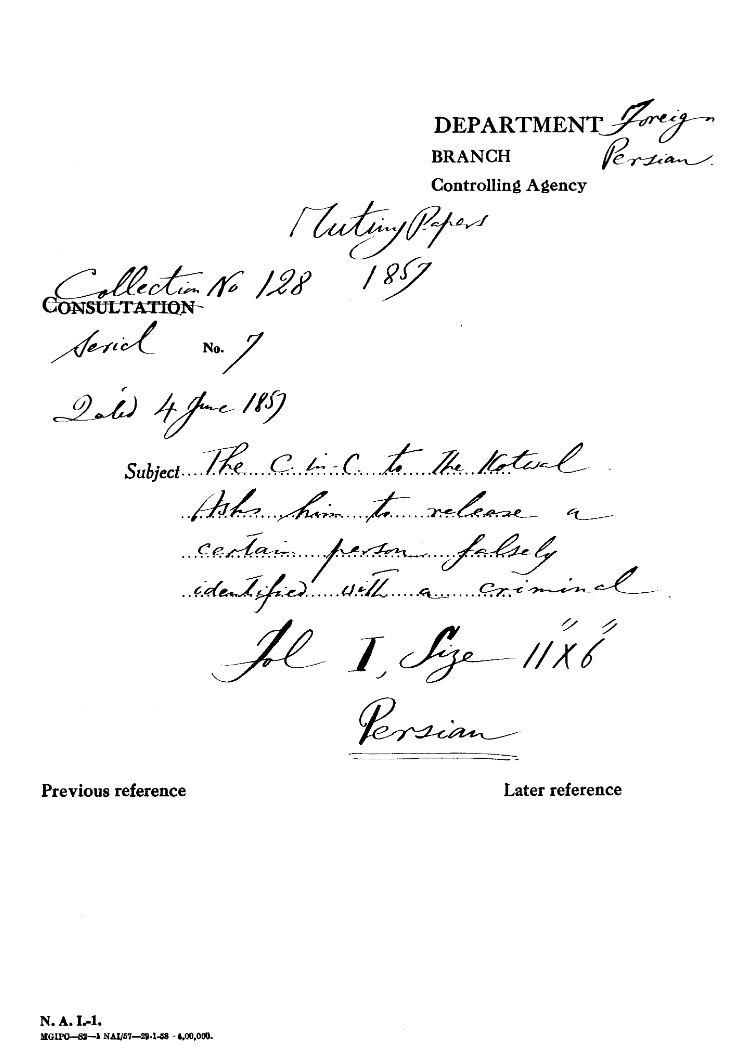 DEPARTMENT Foreign
BRANCH Persian.
Controlling Agency
Mutiny Papers
Collection No 128 1857
CONSULTATION
Serial No. 7
Dated 4 June 1857
Subject The C-in-C to the Kotwal
Asks him to release a
certain person falsely
identified with a criminal
Fol I, Size 11" X 6"
Persian
Previous reference Later reference
N. A. I.-1.
MGIPC—S2—1 NAI/57—29-1-58 - 4,00,000.